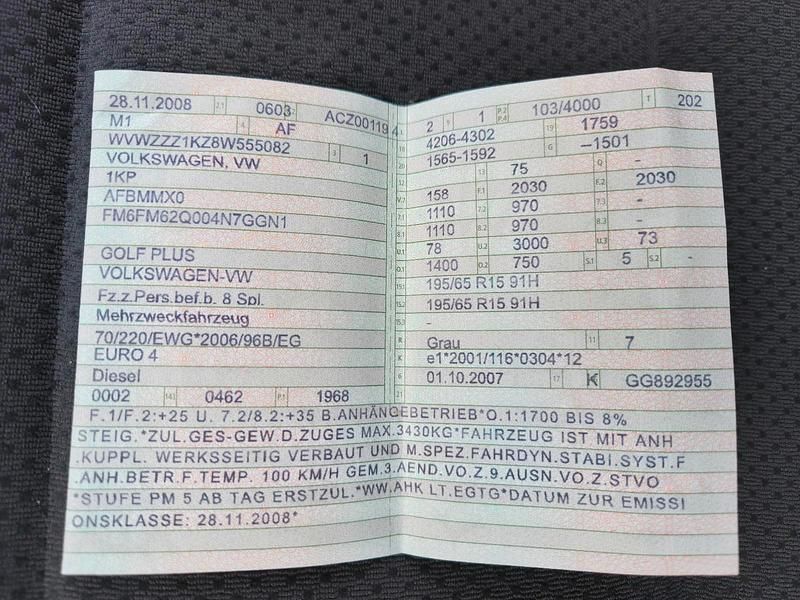 28.11.2008 2.1 0603 ACZ00119 4
M1 4 AF
WVWZZZ1KZ8W555082 3 1
VOLKSWAGEN, VW
1KP
AFBMMX0
FM6FM62Q004N7GGN1
GOLF PLUS
VOLKSWAGEN-VW
Fz.z.Pers.bef.b. 8 Spl.
Mehrzweckfahrzeug
70/220/EWG*2006/96B/EG
EURO 4
Diesel
0002 14.1 0462 P.1 1968
L 2 9 1 P.2 P.4 103/4000 T 202
18 4206-4302 19 1759
20 1565-1592 G –1501
12 - 13 75 Q -
V.7 158 F.1 2030 F.2 2030
7.1 1110 7.2 970 7.3 -
8.1 1110 8.2 970 8.3 -
U.1 78 U.2 3000 U.3 73
O.1 1400 O.2 750 S.1 5 S.2 -
15.1 195/65 R15 91H
15.2 195/65 R15 91H
15.3 -
R Grau 11 7
K e1*2001/116*0304*12
6 01.10.2007 17 K GG892955
21
F.1/F.2:+25 U. 7.2/8.2:+35 B.ANHÄNGEBETRIEB*O.1:1700 BIS 8%
STEIG.*ZUL.GES-GEW.D.ZUGES MAX.3430KG*FAHRZEUG IST MIT ANH
.KUPPL. WERKSSEITIG VERBAUT UND M.SPEZ.FAHRDYN.STABI.SYST.F
.ANH.BETR.F.TEMP. 100 KM/H GEM.3.AEND.VO.Z.9.AUSN.VO.Z.STVO
*STUFE PM 5 AB TAG ERSTZUL.*WW.AHK LT.EGTG*DATUM ZUR EMISSI
ONSKLASSE: 28.11.2008*